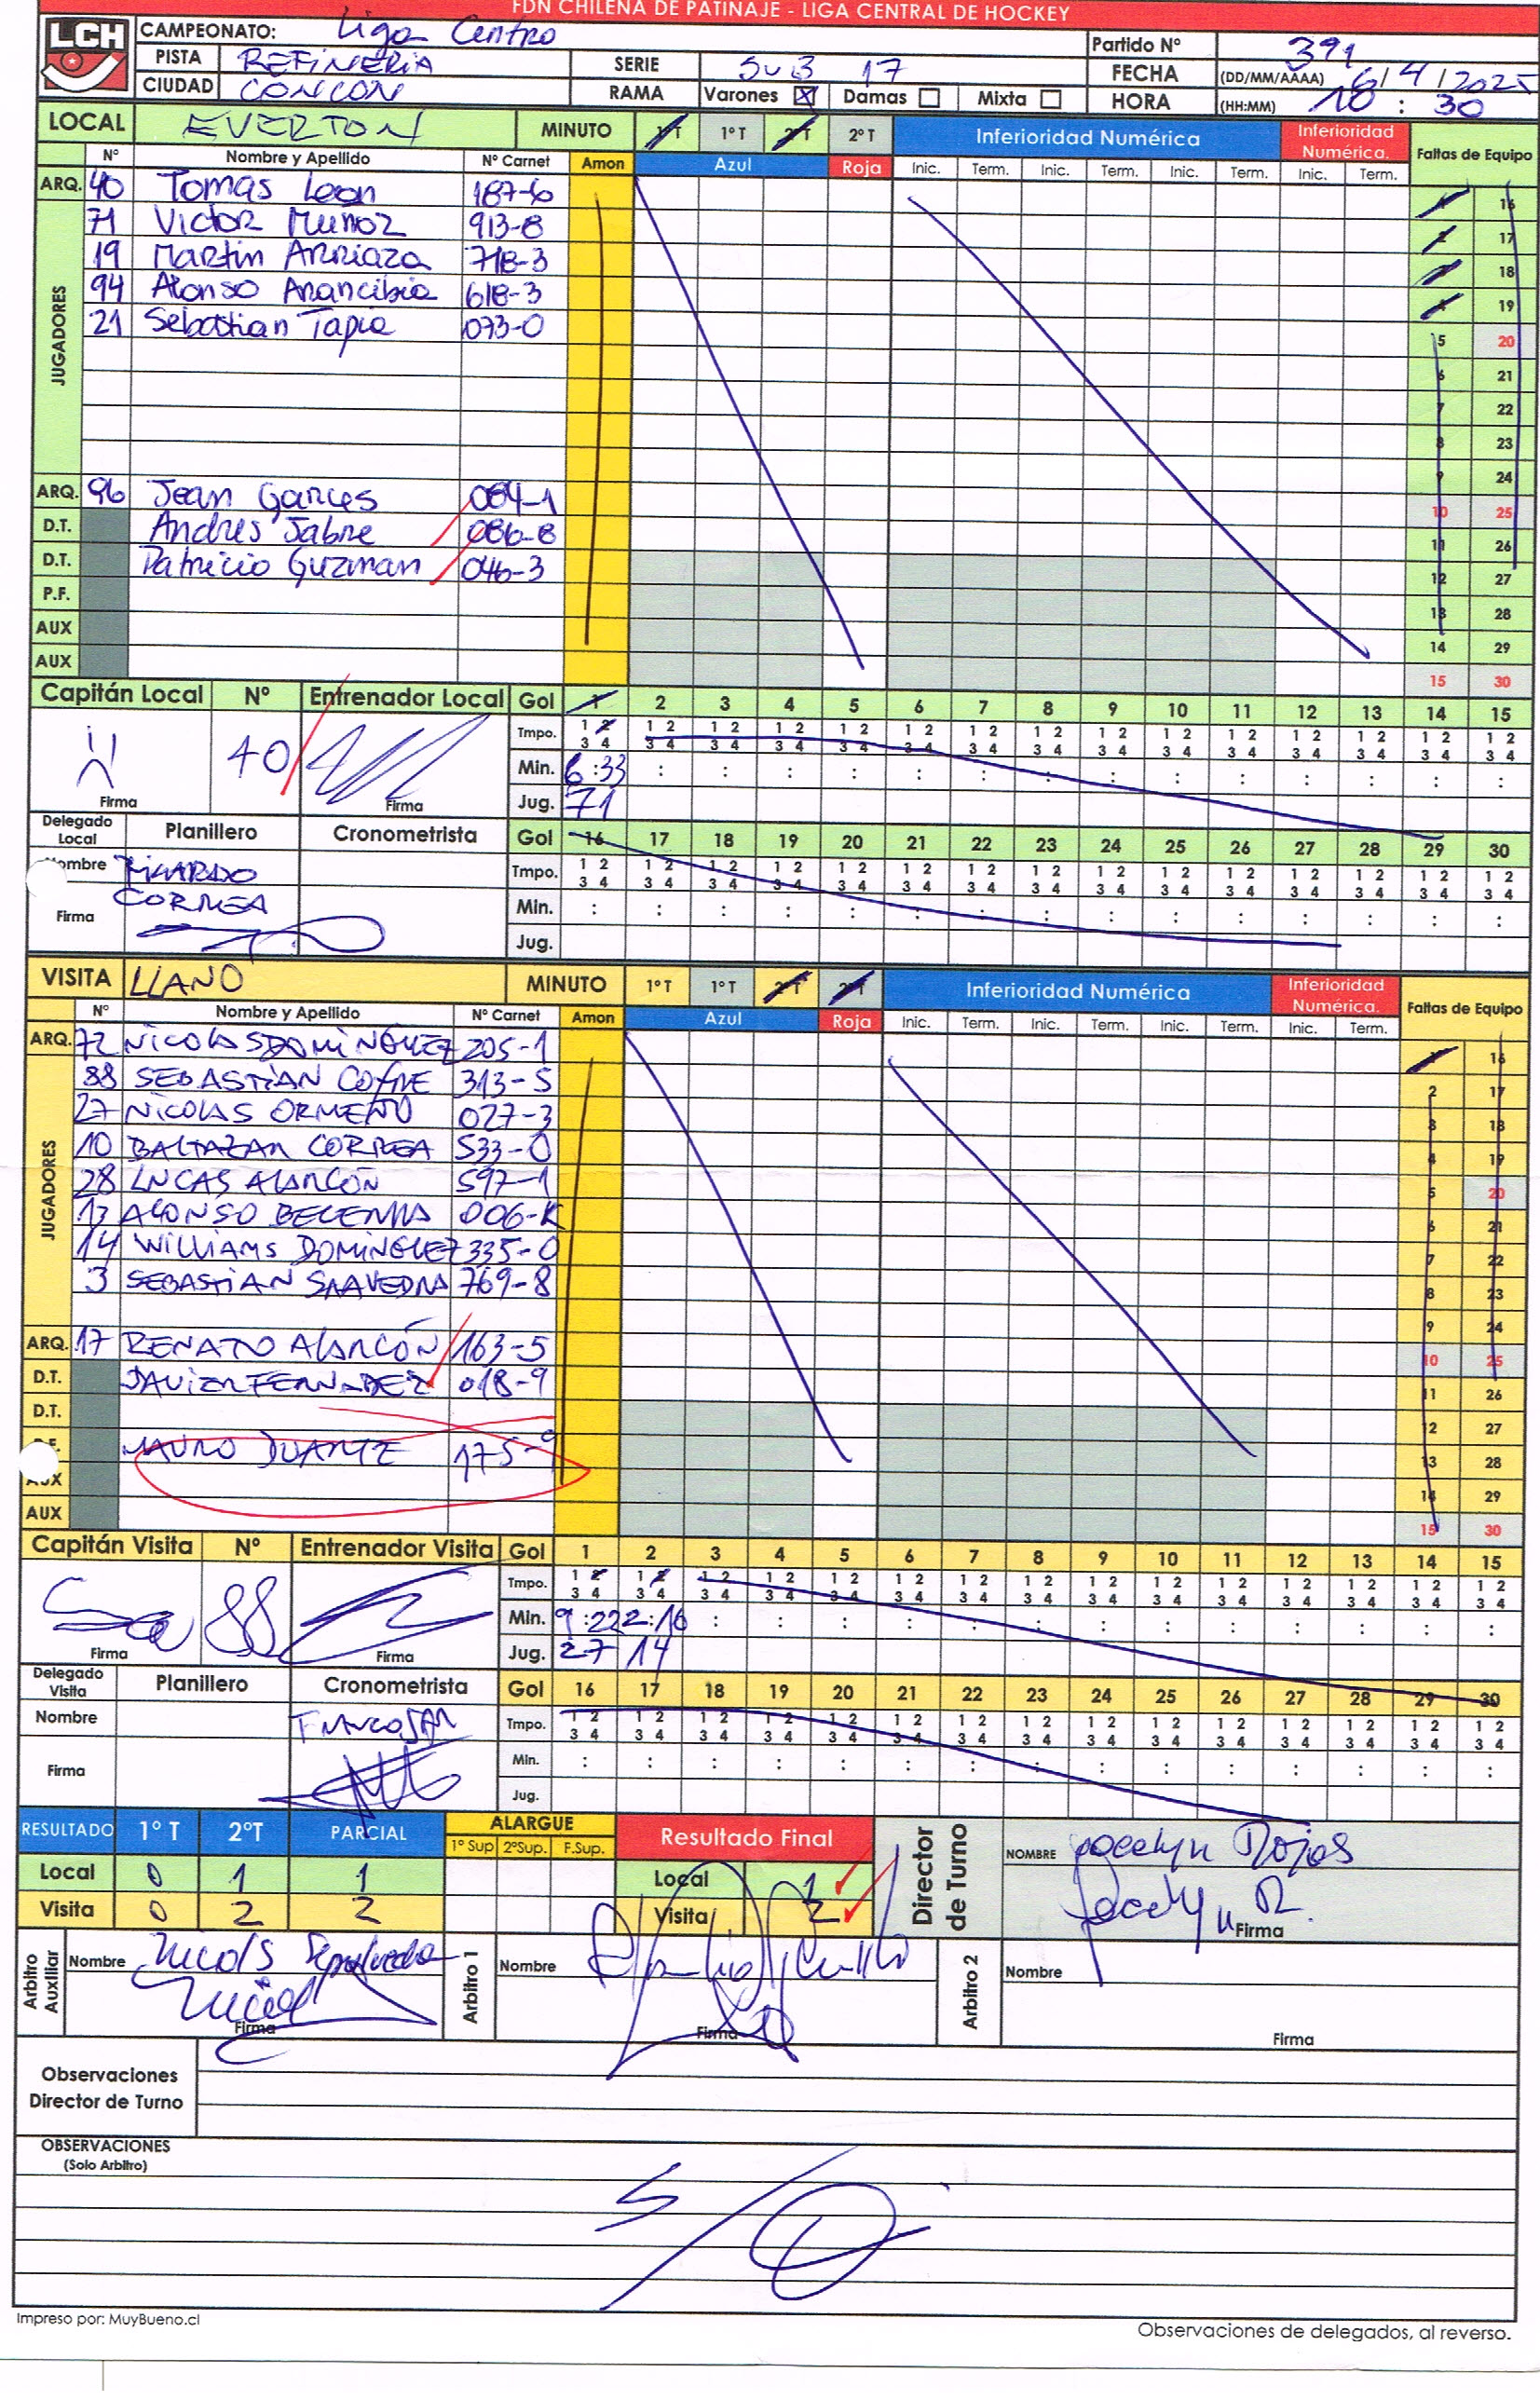 FDN CHILENA DE PATINAJE - LIGA CENTRAL DE HOCKEY
LCH
CAMPEONATO: Liga Centro
Partido Nº 391
PISTA REFINERIA SERIE SUB 17 FECHA (DD/MM/AAAA) 6/4/2025
CIUDAD CONCON RAMA Varones Damas Mixta HORA (HH:MM) 18:30
LOCAL EVERTON MINUTO 1º T 1º T 2º T 2º T Inferioridad Numérica Inferioridad Numérica. Faltas de Equipo
Nº Nombre y Apellido Nº Carnet Amon Azul Roja Inic. Term. Inic. Term. Inic. Term. Inic. Term.
ARQ. 40 Tomas Leon 187-6
JUGADORES
71 Victor Muñoz 913-8
19 Martin Arriaza 718-3
94 Alonso Arancibia 618-3
21 Sebastian Tapia 073-0
ARQ. 96 Jean Garces 084-1
D.T. Andres Jabre 086-8
D.T. Patricio Guzman 046-3
P.F.
AUX
AUX
1 16
2 17
3 18
4 19
5 20
6 21
7 22
8 23
9 24
10 25
11 26
12 27
13 28
14 29
15 30
Capitán Local Nº Entrenador Local Gol 1 2 3 4 5 6 7 8 9 10 11 12 13 14 15
40
Firma Firma
Tmpo. 1 2 3 4
Min. 6:33
Jug. 71
Delegado Local Planillero Cronometrista Gol 16 17 18 19 20 21 22 23 24 25 26 27 28 29 30
Nombre RICARDO CORREA
Firma
Tmpo. 1 2 3 4
Min.
Jug.
VISITA LLANO MINUTO 1º T 1º T 2º T 2º T Inferioridad Numérica Inferioridad Numérica. Faltas de Equipo
Nº Nombre y Apellido Nº Carnet Amon Azul Roja Inic. Term. Inic. Term. Inic. Term. Inic. Term.
ARQ. 72 NICOLAS DOMINGUEZ 205-1
JUGADORES
88 SEBASTIAN COFRE 313-5
27 NICOLAS ORMEÑO 027-3
10 BALTAZAR CORREA 533-0
28 LUCAS ALARCÓN 597-1
13 ALONSO BECERRA 006-K
14 WILLIAMS DOMINGUEZ 335-0
3 SEBASTIAN SAAVEDRA 769-8
ARQ. 17 RENATO ALARCÓN 163-5
D.T. JAVIER FERNADEZ 018-9
D.T.
MAURO DUARTE 175-9
AUX
AUX
1 16
2 17
3 18
4 19
5 20
6 21
7 22
8 23
9 24
10 25
11 26
12 27
13 28
14 29
15 30
Capitán Visita Nº Entrenador Visita Gol 1 2 3 4 5 6 7 8 9 10 11 12 13 14 15
88
Firma Firma
Tmpo. 1 2 3 4
Min. 9:22 2:16
Jug. 27 14
Delegado Visita Planillero Cronometrista Gol 16 17 18 19 20 21 22 23 24 25 26 27 28 29 30
Nombre
Firma
Tmpo. 1 2 3 4
Min.
Jug.
RESULTADO 1º T 2ºT PARCIAL ALARGUE 1º Sup 2ºSup. F.Sup. Resultado Final Director de Turno NOMBRE Jocelyn Rojas
Local 0 1 1 Local 1
Visita 0 2 2 Visita 2
Jocelyn R.
Firma
Arbitro Auxiliar Nombre Nicolás Sepulveda Arbitro 1 Nombre Arbitro 2 Nombre
Firma Firma Firma
Observaciones
Director de Turno
OBSERVACIONES
(Solo Arbitro)
Impreso por: MuyBueno.cl
Observaciones de delegados, al reverso.